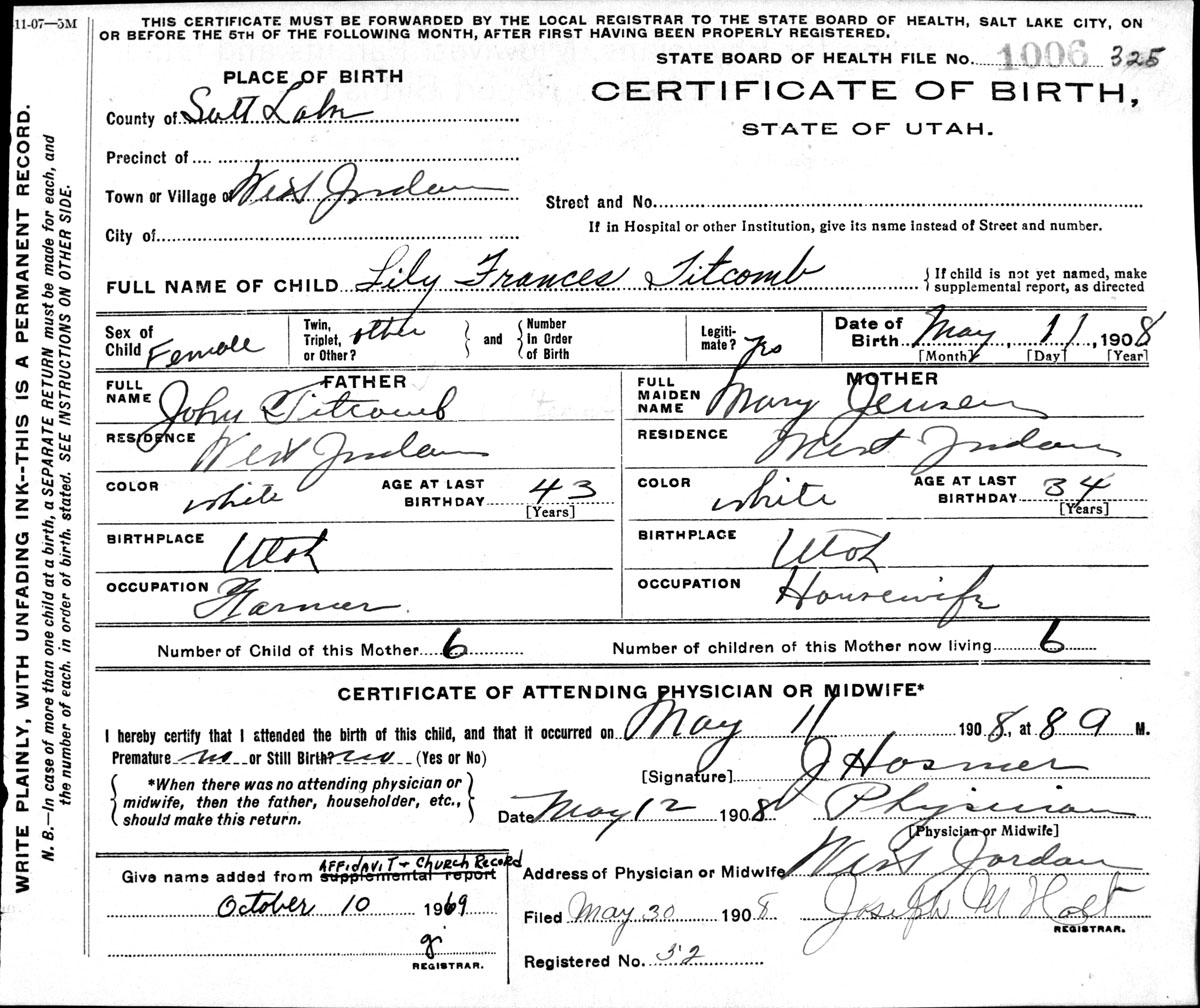 11-07—5M
THIS CERTIFICATE MUST BE FORWARDED BY THE LOCAL REGISTRAR TO THE STATE BOARD OF HEALTH, SALT LAKE CITY, ON
OR BEFORE THE 5TH OF THE FOLLOWING MONTH, AFTER FIRST HAVING BEEN PROPERLY REGISTERED.
STATE BOARD OF HEALTH FILE No. 1006 325
PLACE OF BIRTH
CERTIFICATE OF BIRTH,
STATE OF UTAH.
County of Salt Lake
Precinct of
Town or Village of West Jordan
Street and No.
City of
If in Hospital or other Institution, give its name instead of Street and number.
FULL NAME OF CHILD Lily Frances Titcomb
If child is not yet named, make
supplemental report, as directed
Sex of Child Female
Twin, Triplet, or Other? other
and
Number In Order of Birth
Legiti- mate? Yes
Date of Birth May 11, 1908
[Month] [Day] [Year]
FATHER
FULL NAME John Titcomb
RESIDENCE West Jordan
COLOR white AGE AT LAST BIRTHDAY 43
[Years]
BIRTHPLACE Utah
OCCUPATION Farmer
MOTHER
FULL MAIDEN NAME Mary Jensen
RESIDENCE West Jordan
COLOR white AGE AT LAST BIRTHDAY 34
[Years]
BIRTHPLACE Utah
OCCUPATION Housewife
Number of Child of this Mother 6 Number of children of this Mother now living 6
CERTIFICATE OF ATTENDING PHYSICIAN OR MIDWIFE*
I hereby certify that I attended the birth of this child, and that it occurred on May 11 1908, at 8 a M.
Premature no or Still Birth? no (Yes or No)
*When there was no attending physician or
midwife, then the father, householder, etc.,
should make this return.
[Signature] J Hosmer
Date May 12 1908 Physician
[Physician or Midwife]
Address of Physician or Midwife West Jordan
Filed May 30 1908 Joseph M Holt
REGISTRAR.
Registered No. 32
AFFIDAVIT + CHURCH RECORD
Give name added from supplemental report
October 10 1969
gj
REGISTRAR.
WRITE PLAINLY, WITH UNFADING INK--THIS IS A PERMANENT RECORD.
N. B.—In case of more than one child at a birth, a SEPARATE RETURN must be made for each, and
the number of each, in order of birth, stated. SEE INSTRUCTIONS ON OTHER SIDE.